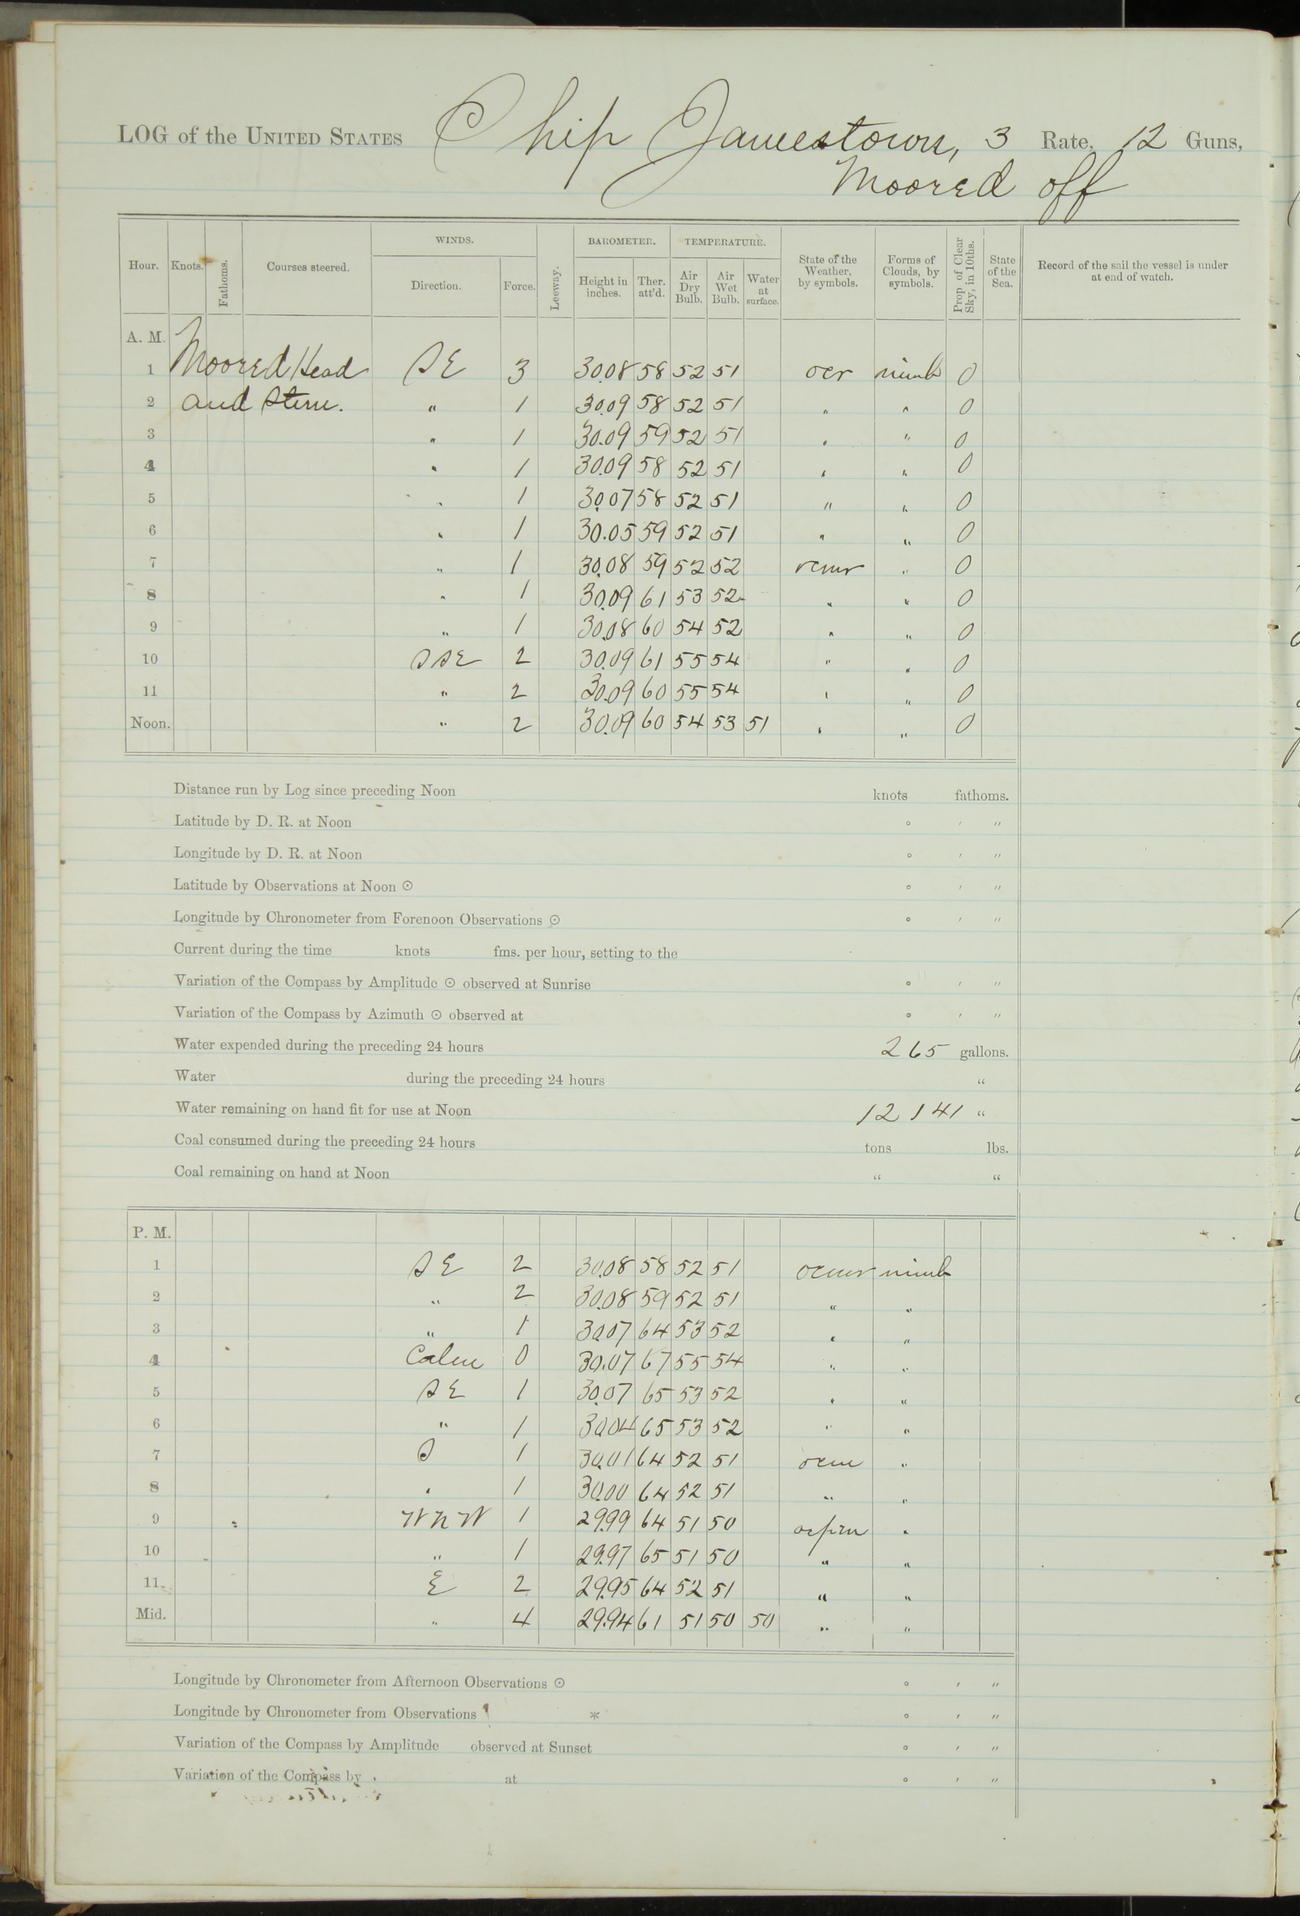 LOG of the UNITED STATES Ship Jamestown, 3 Rate, 12 Guns,
Moored off
Hour. Knots. Fathoms. Courses steered. WINDS. Direction. Force. Leeway. BAROMETER. Height in inches. Ther. att'd. TEMPERATURE. Air Dry Bulb. Air Wet Bulb. Water at surface. State of the Weather, by symbols. Forms of Clouds, by symbols. Prop. of Clear Sky, in 10ths. State of the Sea. Record of the sail the vessel is under at end of watch.
A. M.
1 Moored Head SE 3 30.08 58 52 51 ocr nimb 0
2 and Stern. " 1 30.09 58 52 51 " " 0
3 " 1 30.09 59 52 51 " " 0
4 " 1 30.09 58 52 51 " " 0
5 " 1 30.07 58 52 51 " " 0
6 " 1 30.05 59 52 51 " " 0
7 " 1 30.08 59 52 52 " 0
8 " 1 30.09 61 53 52 " " 0
9 " 1 30.08 60 54 52 " " 0
10 SSE 2 30.09 61 55 54 " " 0
11 " 2 30.09 60 55 54 " " 0
Noon. " 2 30.09 60 54 53 51 " " 0
Distance run by Log since preceding Noon knots fathoms.
Latitude by D. R. at Noon ° ′ ″
Longitude by D. R. at Noon ° ′ ″
Latitude by Observations at Noon ☉ ° ′ ″
Longitude by Chronometer from Forenoon Observations ☉ ° ′ ″
Current during the time knots fms. per hour, setting to the
Variation of the Compass by Amplitude ☉ observed at Sunrise ° ′ ″
Variation of the Compass by Azimuth ☉ observed at ° ′ ″
Water expended during the preceding 24 hours 265 gallons.
Water during the preceding 24 hours "
Water remaining on hand fit for use at Noon 12141 "
Coal consumed during the preceding 24 hours tons lbs.
Coal remaining on hand at Noon " "
P. M.
1 SE 2 30.08 58 52 51 ocmr nimb
2 " 2 30.08 59 52 51 " "
3 " 1 30.07 64 53 52 " "
4 Calm 0 30.07 67 55 54 " "
5 SE 1 30.07 65 53 52 " "
6 " 1 30.04 65 53 52 " "
7 S 1 30.01 64 52 51 ocm "
8 " 1 30.00 64 52 51 " "
9 WNW 1 29.99 64 51 50 "
10 " 1 29.97 65 51 50 " "
11 E 2 29.95 64 52 51 " "
Mid. " 4 29.94 61 51 50 50 " "
Longitude by Chronometer from Afternoon Observations ☉ ° ′ ″
Longitude by Chronometer from Observations * ° ′ ″
Variation of the Compass by Amplitude observed at Sunset ° ′ ″
Variation of the Compass by at ° ′ ″